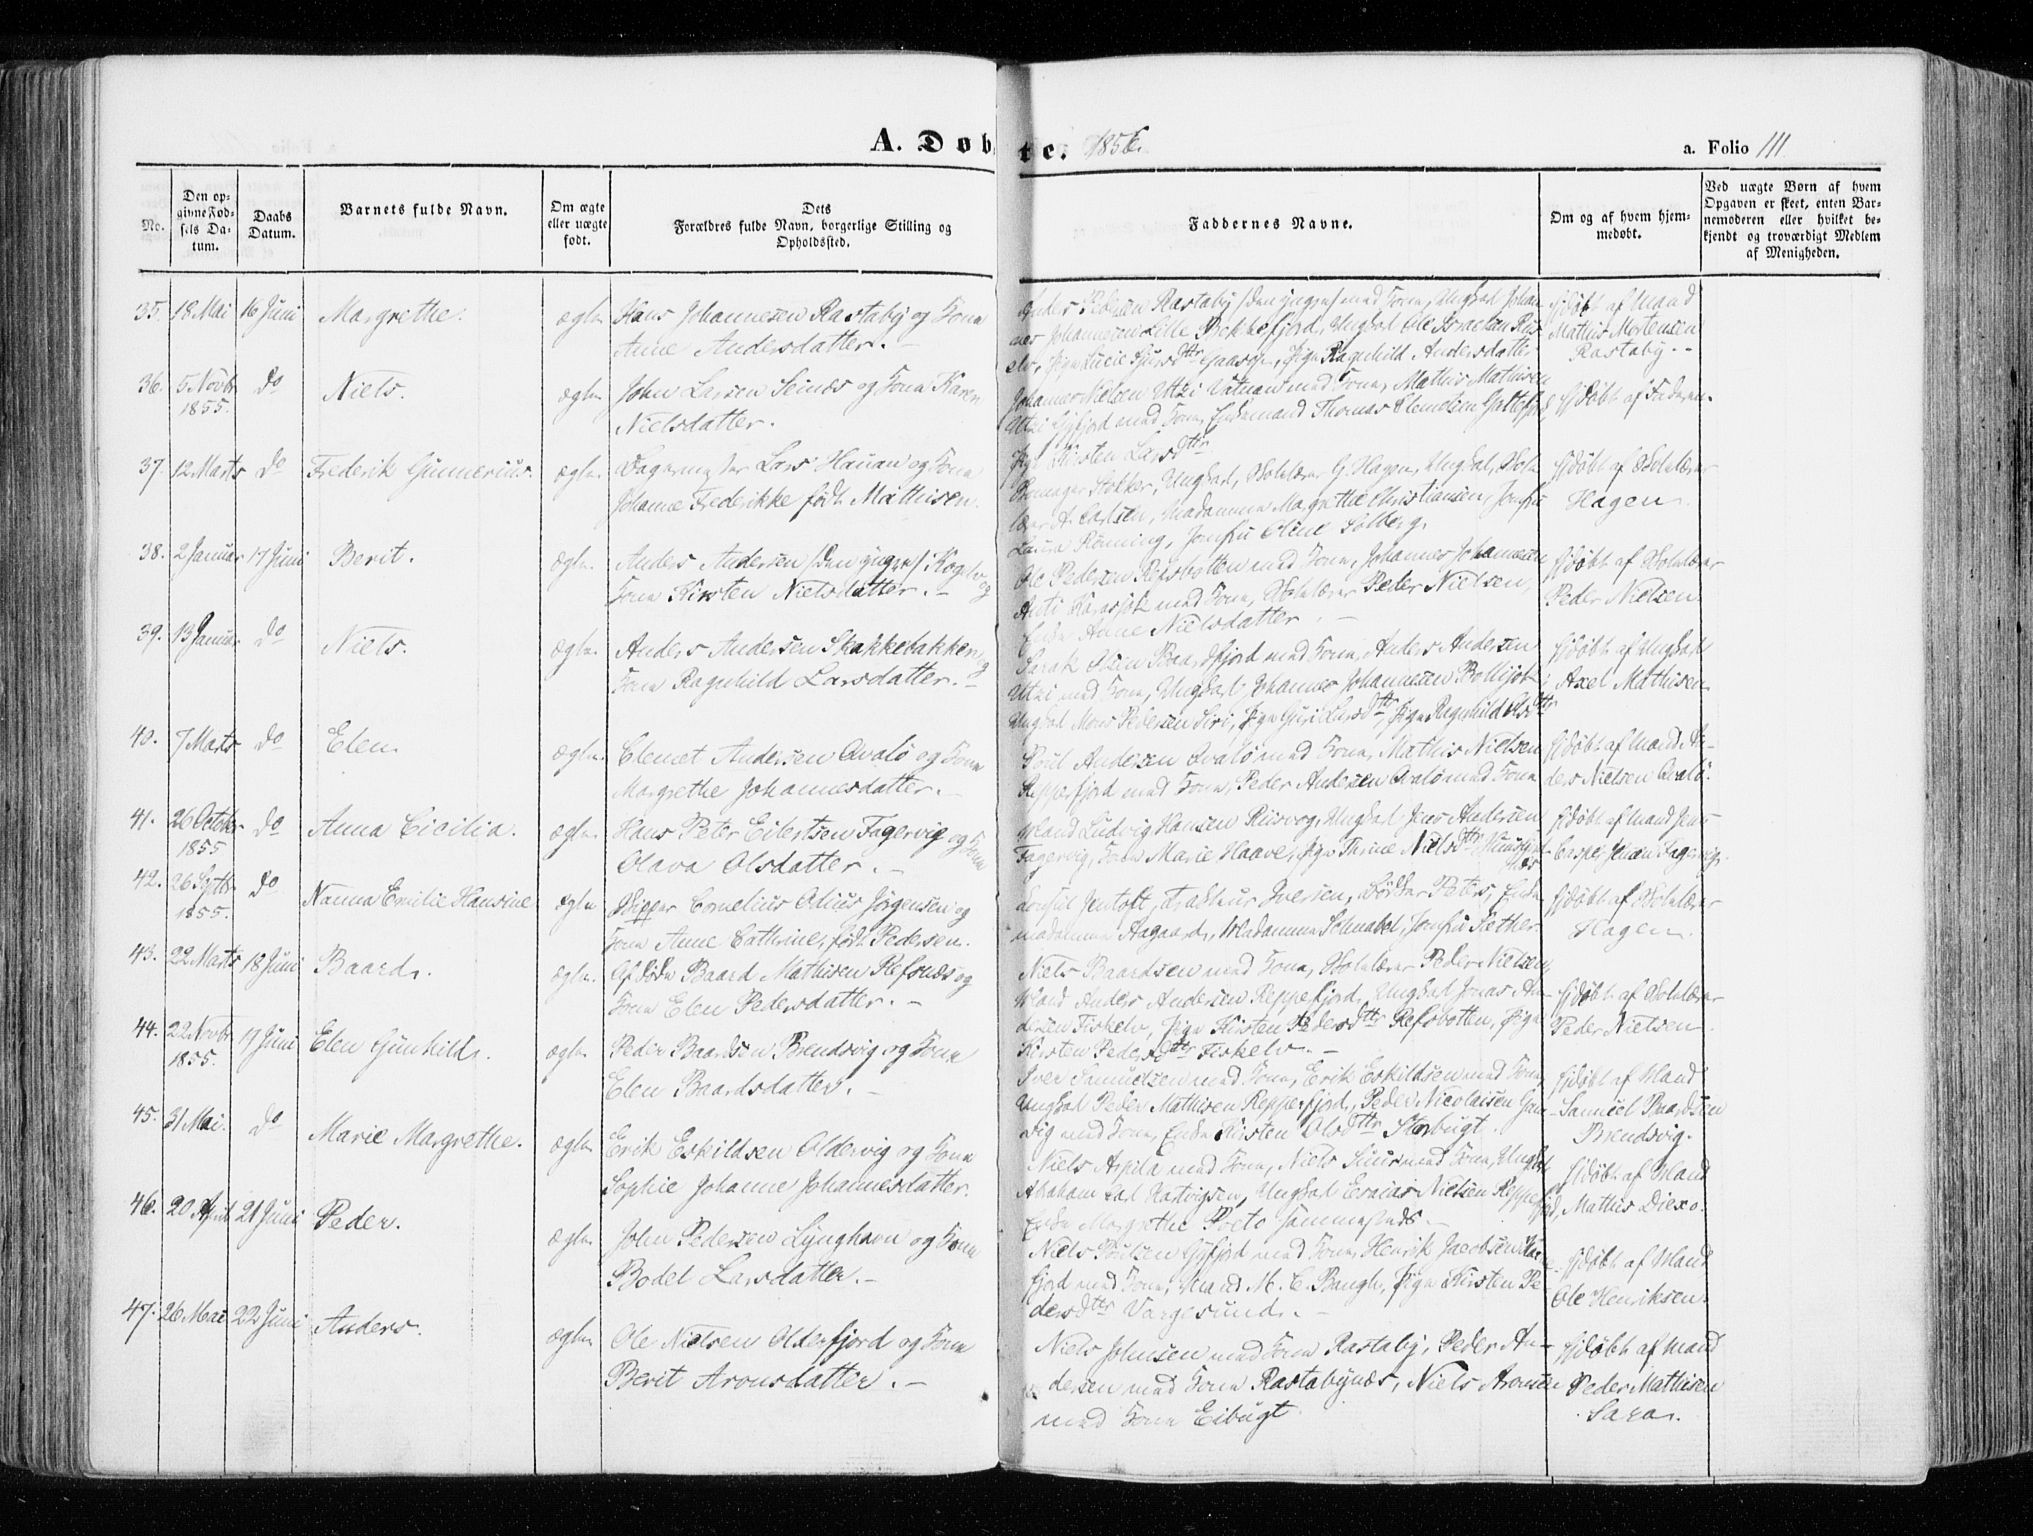 A. Døb
te. 1856.
a. Folio 111
No.
Den op-
givne Fød-
sels Da-
tum.
Daabs
Datum.
Barnets fulde Navn.
Om ægte
eller uægte
født.
Dets
Forældres fulde Navn, borgerlige Stilling og
Opholdssted.
Faddernes Navne.
Om og af hvem hjem-
medøbt.
Ved uægte Børn af hvem
Opgaven er skeet, enten Bar-
nemoderen eller hvilket be-
kjendt og troværdigt Medlem
af Menigheden.
35. 18 Mai 16 Juni Margrethe. ægte. Hans Johannesen Rastaby og Kone
Anne Andersdatter.-
Anders Olsen Rastaby (den yngre) med Kone, Ungkarl Johan-
nes Johannesen Lille Bekkefjord, Ungkarl Ole
Pige Ragnhild Andersdatter
hjdøbt af Mand
Mathis Mortensen
Rastaby.-
36. 5 Novbr 1855. do Niels. ægte John Larsen Seinæs og Kone Karen
Nielsdatter.
Johannes Nielsen Utzi med Kone, Mathis Mathisen
Utzi med Kone, Enkemand Thomas Clemetsen
Pige Kirsten Larsdttr
hjdøbt af Faderen.
37. 12 Marts do Frederik Gunnerius. ægte. Lagermester Lars Hauan og Kone
Johanne Frederikke født Mathisen.
Ungkarl, Skolelærer G. Hagen, Ungkarl, Skole
lærer A. Carlsen, Madamme Margrethe Christiansen, Jomfru
Laura Rønning, Jomfru Oline Solberg.
hjdøbt af Skolelærer
Hagen.
38. 2 Januar 17 Juni Berit. ægte. Anders Andersen (den yngre) og
Kone Kirsten Nielsdatter.-
Ole Pedersen Refsbotten med Kone, Johannes Johannesen
Anti Karasjok med Kone, Skolelærer Peder Nielsen,
Enke Anne Nielsdatter.-
hjdøbt af Skolelærer
Peder Nielsen
39. 13 Januar do Niels. ægte. Anders Andersen Skakkebakken og
Kone Ragnhild Larsdatter.-
Sarak Olsen Baardfjord med Kone, Anders Andersen
Utzi med Kone, Ungkarl Johannes Johannesen
Ungkarl Mons Pedersen Siri, Pige Guri Larsdttr, Pige Ragnhild Olsdttr
hjdøbt af Ungkarl
Axel Mathisen
40. 7 Marts do Elen ægte. Clemet Andersen Qvalø og Kone
Margrethe Johannesdatter.-
Poul Andersen Qvalø med Kone, Mathis Nielsen
Repperfjord med Kone, Peder Andersen Qvalø med Kone
hjdøbt af Mand An-
ders Nielsen Qvalø.
41. 26 October 1855 do Anna Cicilia. ægte. Hans Peter Eilertsen Fagervig og Kone
Olava Olsdatter.-
Mand Ludvig Hansen, Ungkarl Jens Andersen
Fagervig, Kone Marie Haave, Pige Thrine Nielsdttr
hjdøbt af Mand Jens
Casper Fagervig.
42. 26 Septbr 1855. do Nanna Emilie Hansine ægte Skipper Cornelius Odius Jørgensen og
Kone Anne Cathrine, født Pedersen.
Jentoft, Iversen, Peters,
madamme Aagaard, Madamme Schnabel, Jomfru Sether
hjdøbt af Skolelærer
Hagen.
43. 22 Marts 18 Juni Baard. ægte. Baard Mathisen Refsnæs og
Kone Elen Pedersdatter.-
Niels Baardsen med Kone, Skolelærer Peder Nielsen,
Mand Anders Andersen Reppefjord, Ungkarl Jonas An-
dersen Fiskelv, Pige Kirsten Pedersdttr Refsbotten, Pige
Kirsten Pedersdttr Fiskelv.-
hjdøbt af Skolelærer
Peder Nielsen.
44. 22 Novbr 1855. 17 Juni Elen Gunhild. ægte. Peder Baardsen Brendsvig og Kone
Elen Baardsdatter.-
Iver Samuelsen med Kone, Erik Eskildsen med Kone,
Ungkarl Peder Mathisen Repperfjord, Peder Nicolaisen
vig med Kone, Enke Kirsten Olsdttr Storbugt.
hjdøbt af Mand
Samuel Baardsen
Brendsvig.
45. 31 Mai. do Marie Margrethe. ægte. Erik Eskildsen Oldervig og Kone
Sophie Johanne Johannesdatter.
Niels Aspila med Kone, Niels med Kone, Ungkarl
Abraham Hartvigsen, Ungkarl Esaias Nielsen Reppefjord,
Enke Margrethe sammesteds.-
hjdøbt af Mand
Mathis
46. 20 April 21 Juni Peder. ægte. John Pedersen Lynghavn og Kone
Bodel Larsdatter.-
Niels Poulsen med Kone, Henrik Jacobsen
fjord med Kone, Mand M. C. Bangh, Pige Kirsten Pe-
dersdttr Vargesund.-
hjdøbt af Mand
Ole Henriksen.
47. 26 Mai 22 Juni Anders. ægte. Ole Nielsen Olderfjord og Kone
Berit Aronsdatter.-
Niels Johnsen med Kone Rastaby, Peder An-
dersen med Kone Rastabynæs, Niels Aronsen
med Kone Eibugt.
hjdøbt af Mand
Peder Mathisen
Sara.